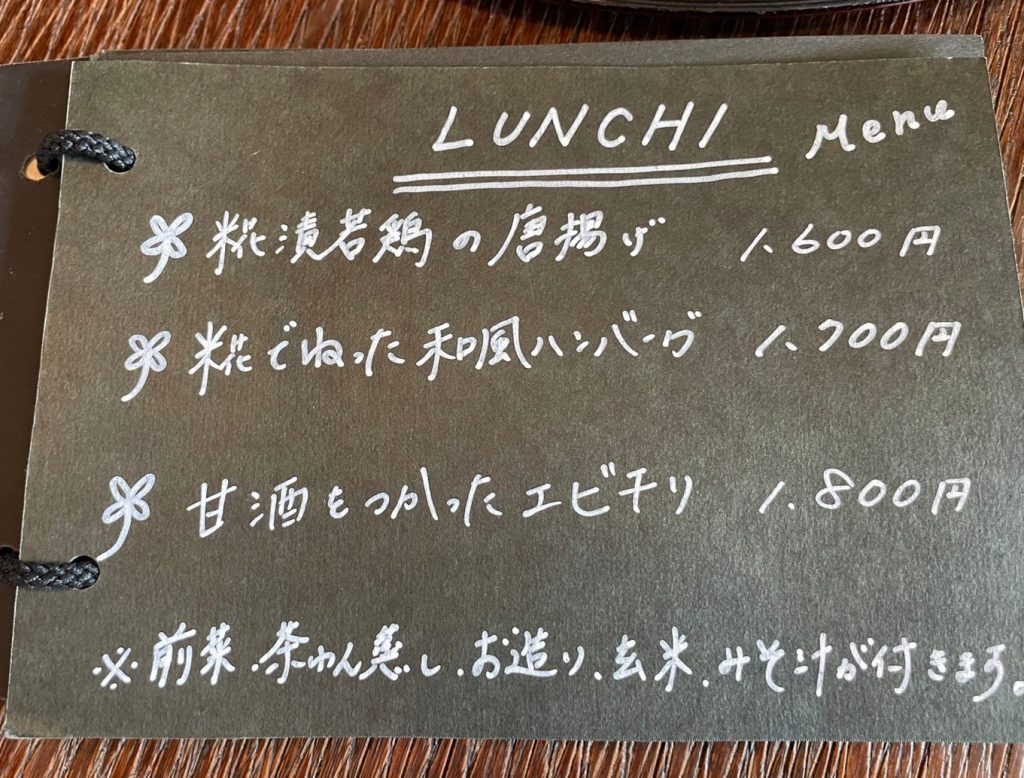 LUNCHI Menu
糀漬若鶏の唐揚げ 1.600円
糀でねった和風ハンバーグ 1.700円
甘酒をつかったエビチリ 1.800円
※前菜.茶わん蒸し.お造り、玄米.みそ汁が付きます。